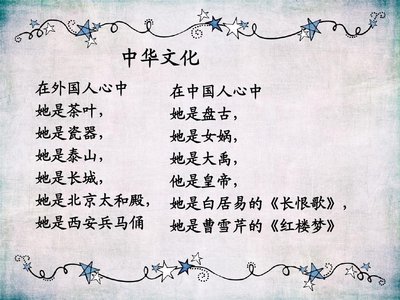 中华文化
在外国人心中
她是茶叶，
她是瓷器，
她是泰山，
她是长城，
她是北京太和殿，
她是西安兵马俑
在中国人心中
她是盘古，
她是女娲，
她是大禹，
他是皇帝，
她是白居易的《长恨歌》，
她是曹雪芹的《红楼梦》